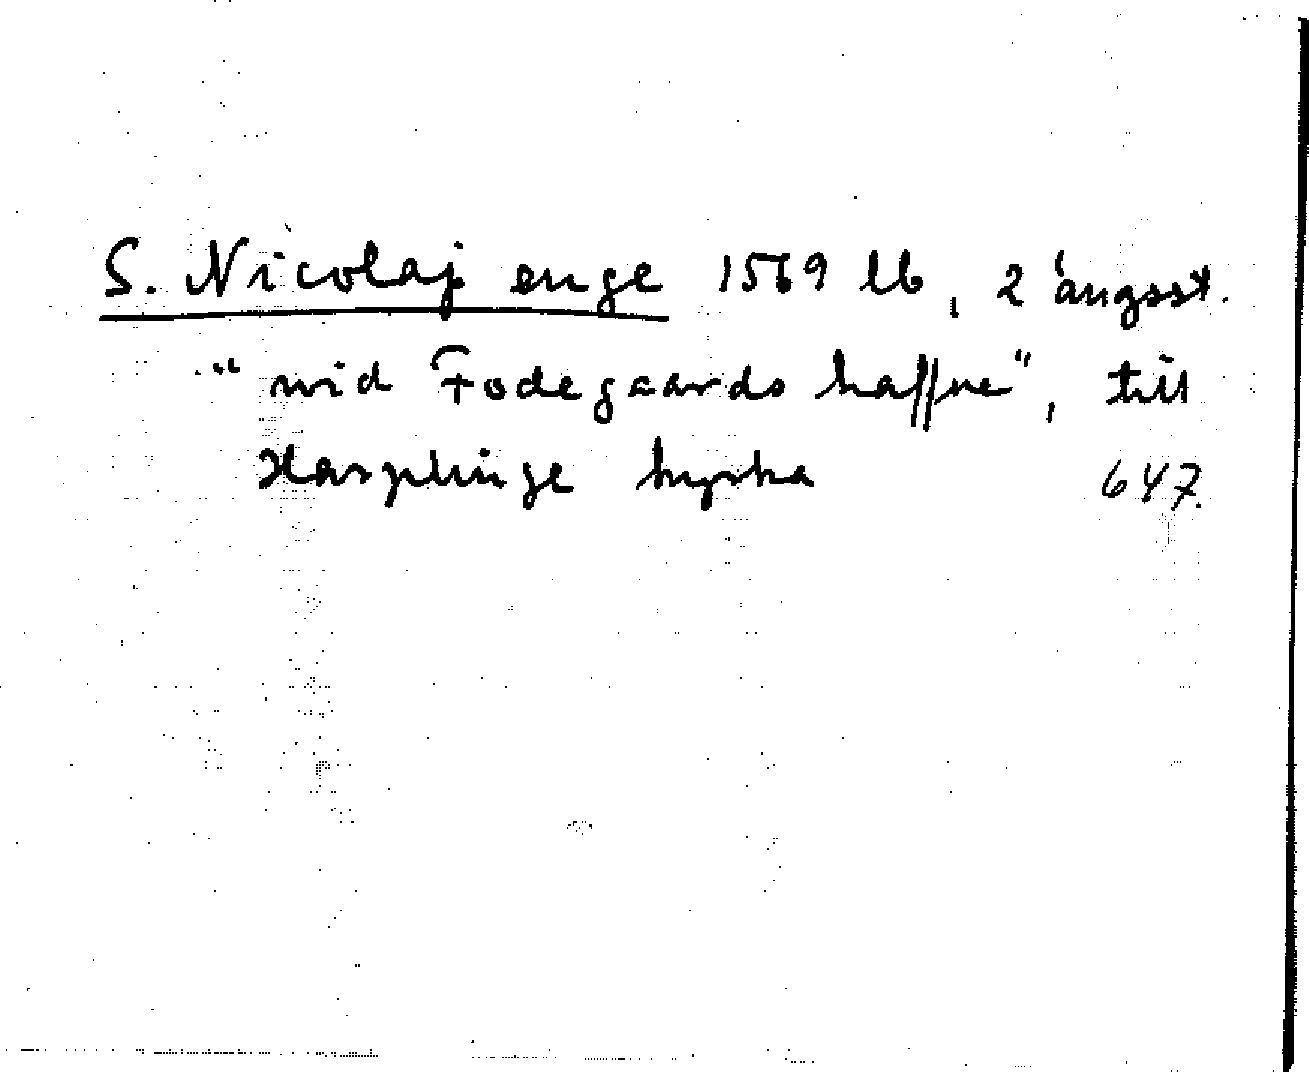 S. Nicolaj enge 1569 lb, 2 ängsst.
"wid Fodegaards haffne", till
Hasplinge kyrka 647.